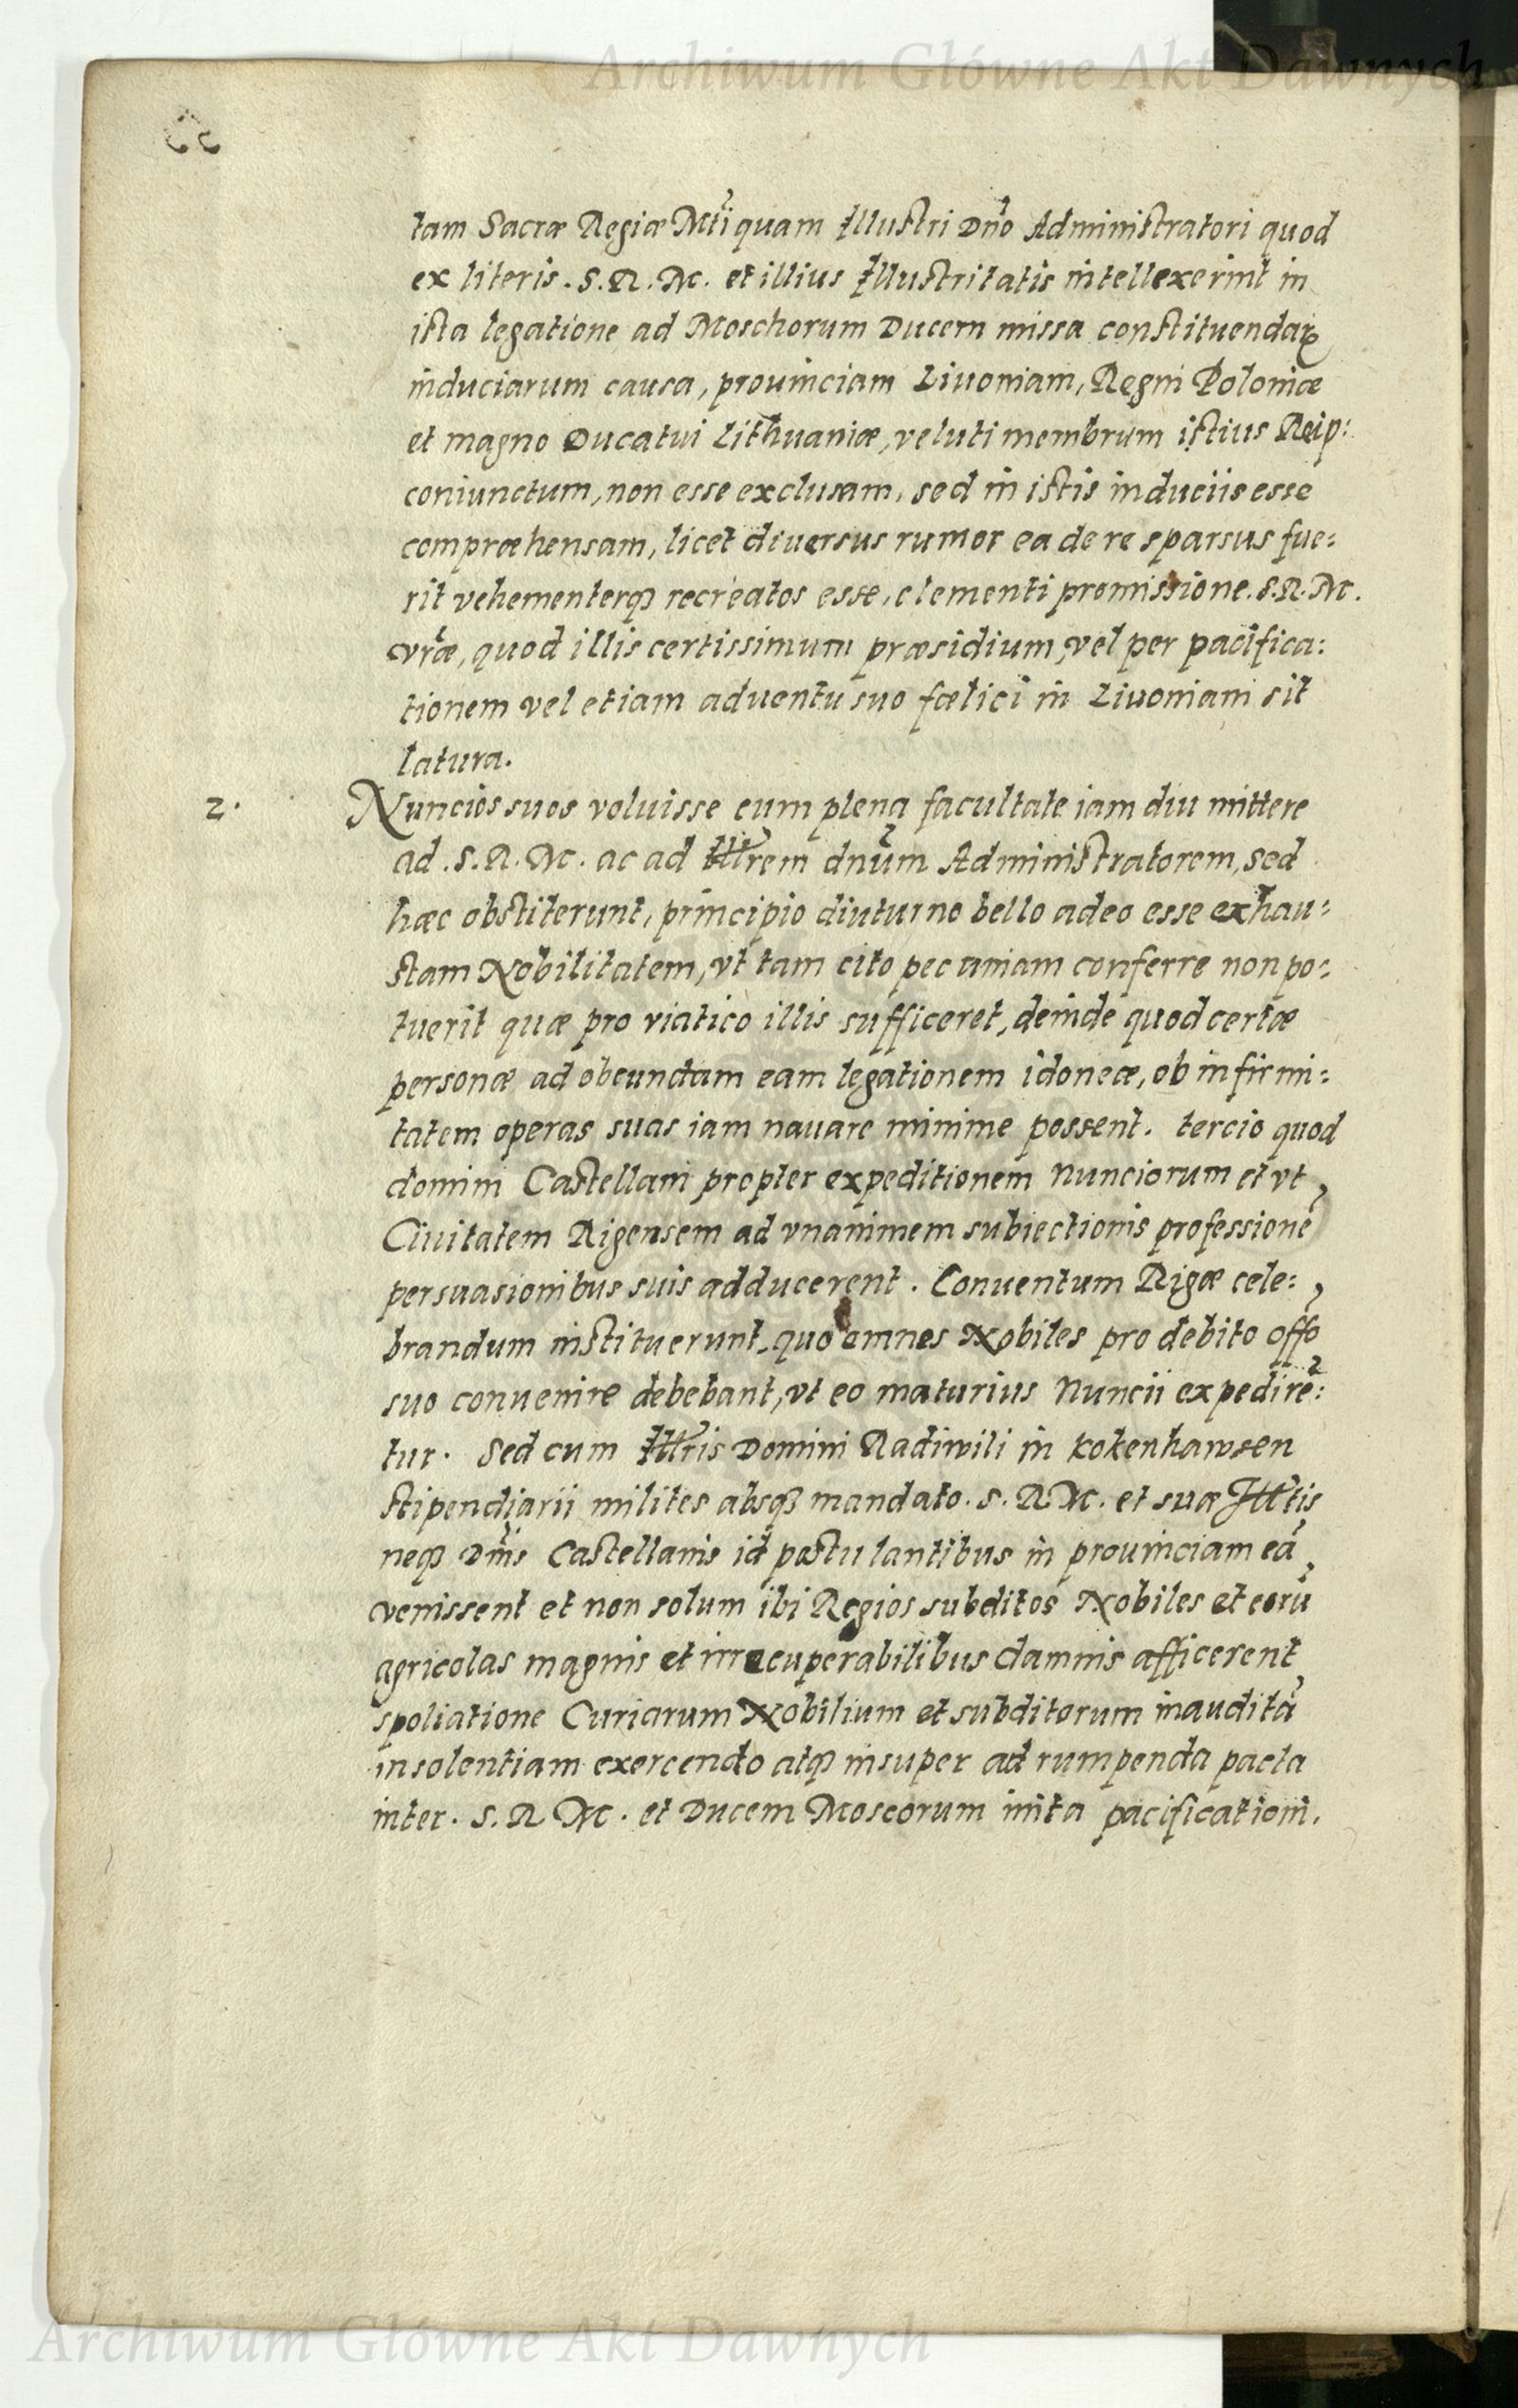 Archiwum Główne Akt Dawnych
tam Sacræ Regiæ Mti quam Illustri Dno Administratori quod
ex literis. S. R. M. et illius Illustritatis intellexerint in
ista legatione ad Moschorum Ducem missa constituendaꝝ
induciarum causa, prouinciam Liuoniam, Regni Poloniæ
et magno Ducatui Lithuaniæ, veluti membrum istius Reip:
coniunctum, non esse exclusam, sed in istis induciis esse
compræhensam, licet diuersus rumor ea de re sparsus fue:
rit vehementerqꝫ recreatos esse, clementi promissione. S. R. M.
vræ, quod illis certissimum præsidium, vel per pacifica:
tionem vel etiam aduentu suo fœlici in Liuoniam sit
latura.
2. Nuncios suos voluisse cum plena facultate iam diu mittere
ad. S. R. M. ac ad Illrem dnum Administratorem, sed
hæc obstiterunt, principio diuturno bello adeo esse exhau:
stam Nobilitatem, vt tam cito pecuniam conferre non po:
tuerit quæ pro viatico illis sufficeret, deinde quod certæ
personæ ad obeundam eam legationem idoneæ, ob infirmi:
tatem operas suas iam nauare minime possent. tercio quod
domini Castellani propter expeditionem Nunciorum et vt
Ciuitatem Rigensem ad vnanimem subiectionis professionē
persuasionibus suis adducerent. Conuentum Rigæ cele:
brandum instituerunt, quo omnes Nobiles pro debito offo
suo conuenire debebant, vt eo maturius Nuncii expedirē:
tur. Sed cum Illris Domini Radiwili in Kokenhawsen
stipendiarii milites absqꝫ mandato. S. R. M. et suæ Illtis
neqꝫ Dnis Castellanis id postulantibus in prouinciam eā
venissent et non solum ibi Regios subditos Nobiles et eorū
agricolas magnis et irrecuperabilibus damnis afficerent
spoliatione Curiarum Nobilium et subditorum inauditā
insolentiam exercendo atqꝫ insuper ad rumpenda pacta
inter. S. R. M. et Ducem Moscorum inita pacificationi.
Archiwum Główne Akt Dawnych